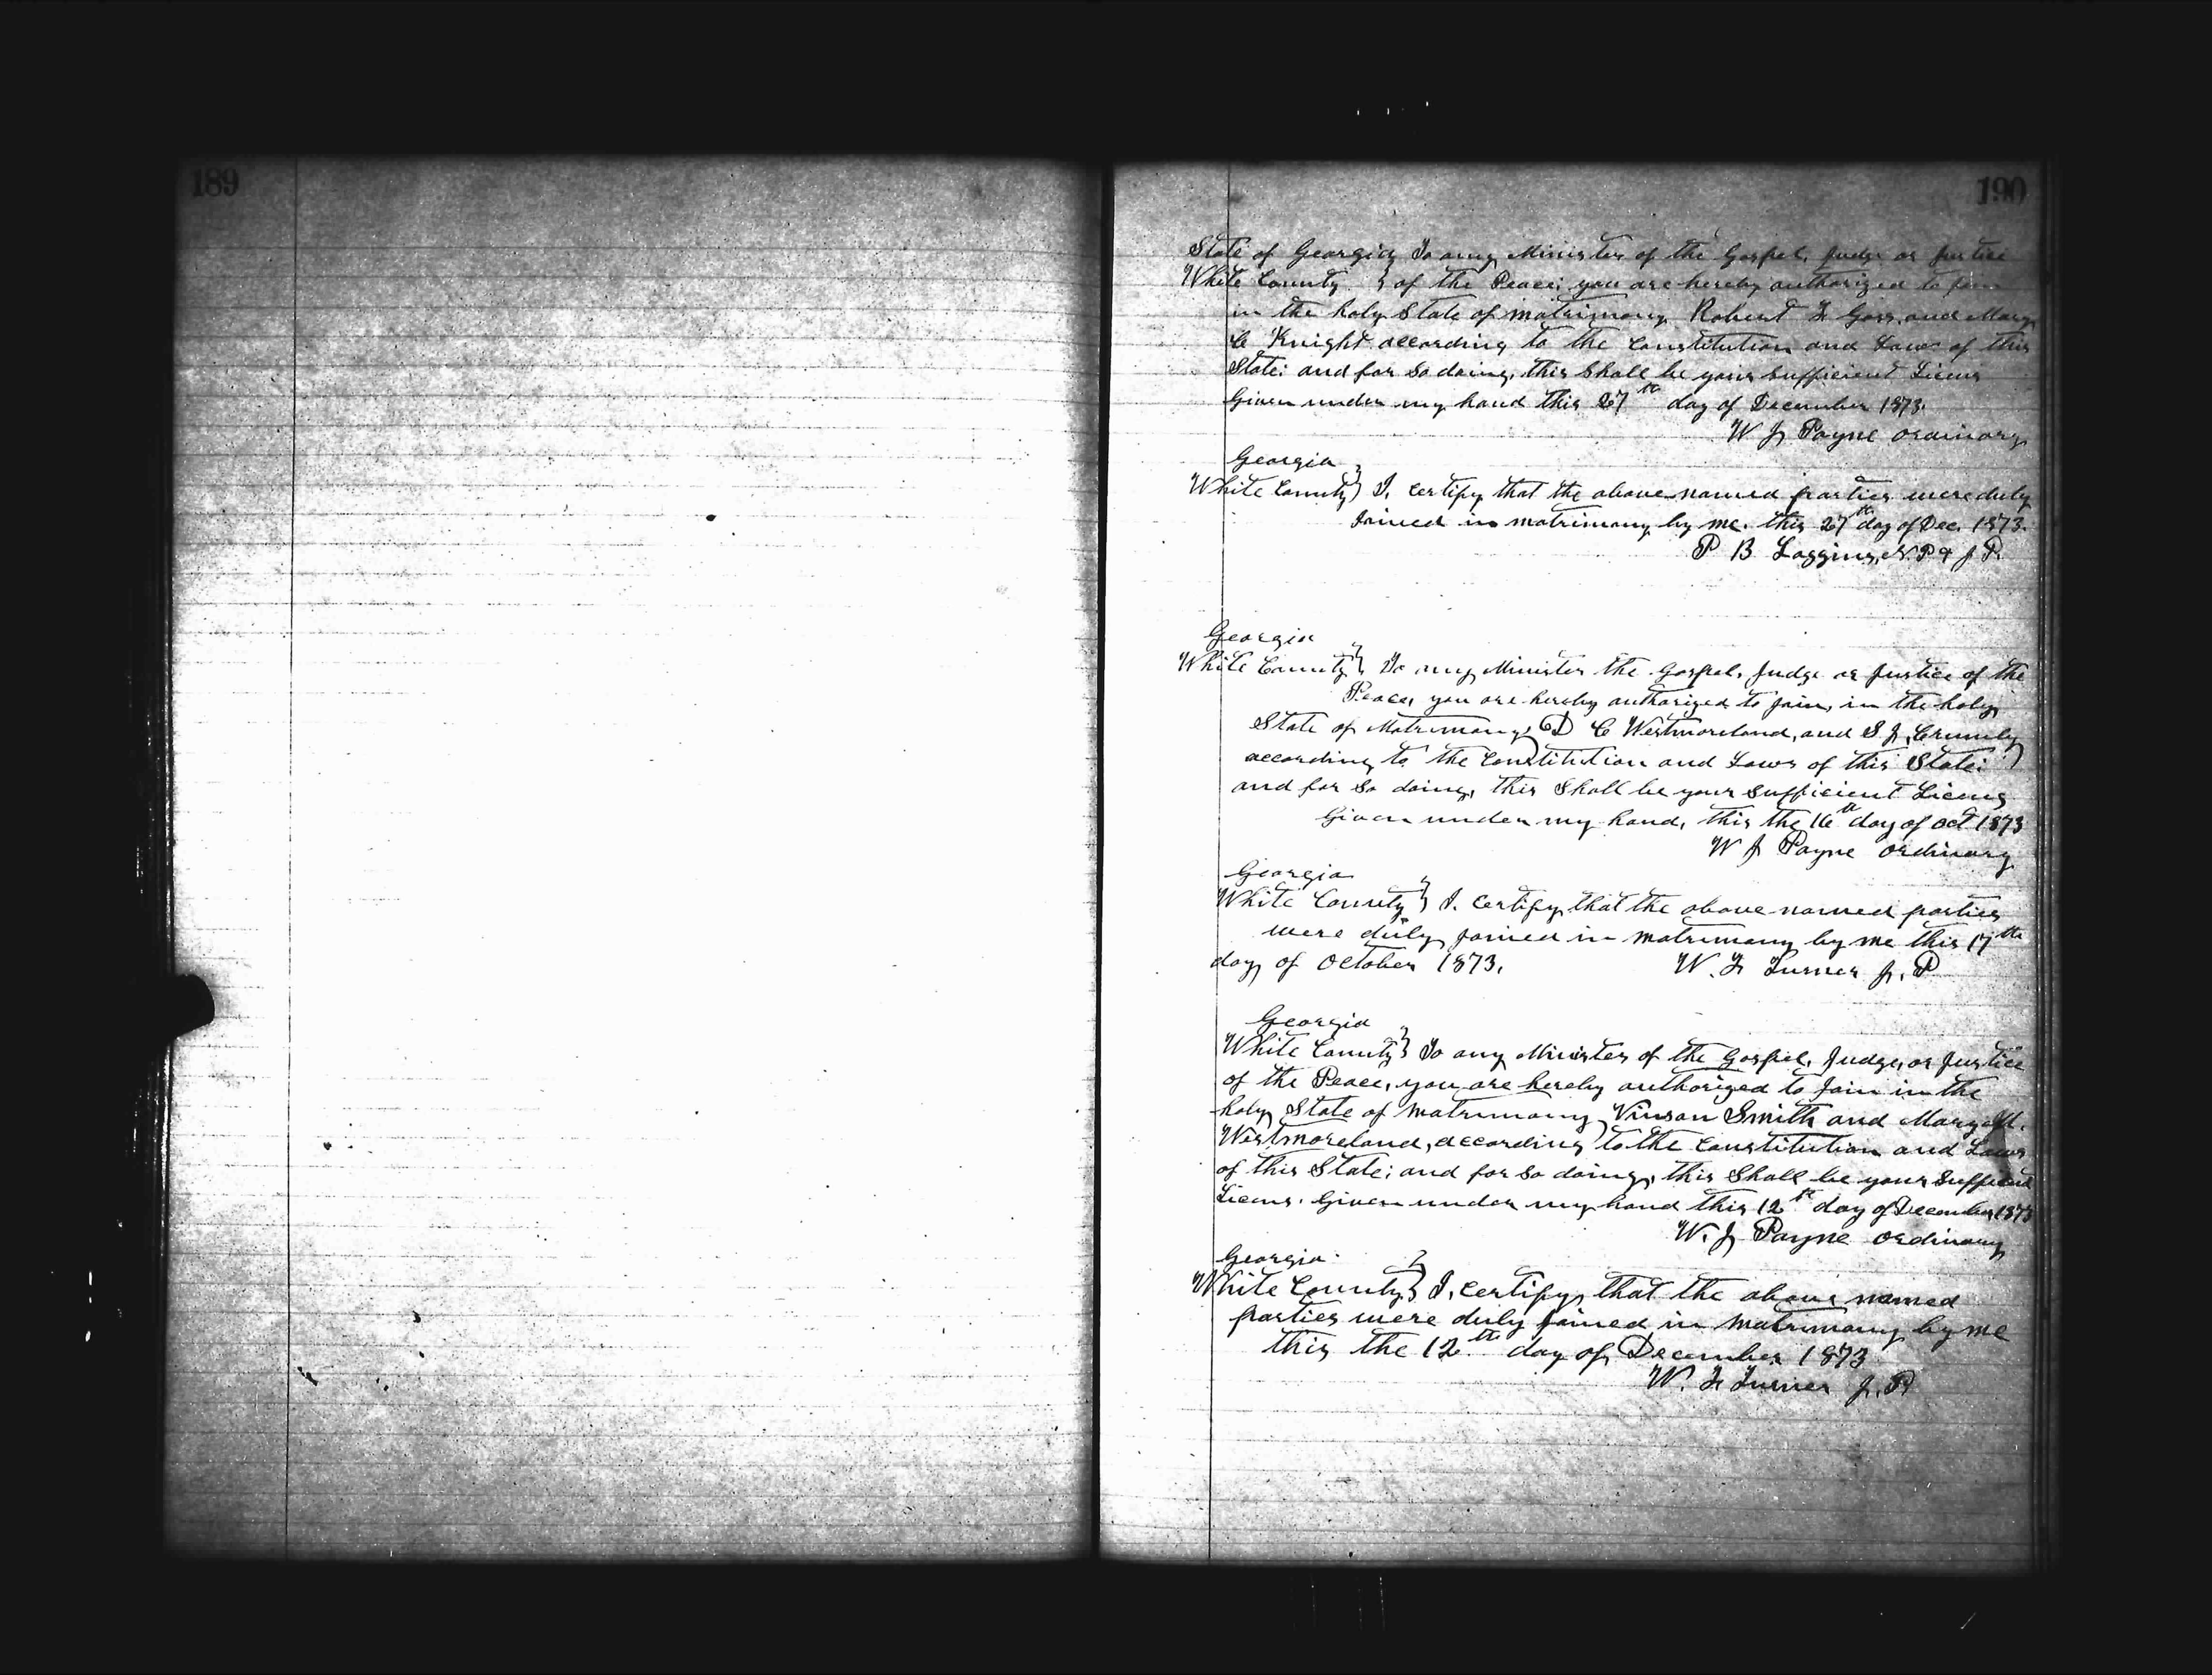 189
190
State of Georgia To any Minister of the Gospel, Judge or Justice
White County } of the Peace; you are hereby authorized to join
in the holy State of matrimony Robert F Goss, and Mary
C Knight according to the Constitution and Laws of this
State: and for so doing, this Shall be your Sufficient Licens
Given under my hand this 27th day of December 1873.
W J Payne ordinary
Georgia
White County } I, certify that the above named parties were duly
Joined in matrimony by me. this 27th day of Dec. 1873.
P B Loggins, N. P & J P.
Georgia
White County } To any Minister the Gospel, Judge or Justice of the
Peace, you are hereby authorized to join, in the holy
State of Matrimony, D C Westmoreland, and S J, Crumly
according to the Constitution and Laws of this State:
and for so doing, this Shall be your Sufficient Licens
Given under my hand, this the 16th day of Oct 1873
W J Payne ordinary
Georgia
White County } I. Certify, that the above named parties
were duly joined in matrimony by me this 17th
day of October 1873. W. F Turner J. P
Georgia
White County } To any Minister of the Gospel, Judge, or Justice
of the Peace, you are hereby authorized to join in the
holy State of matrimony Vinson Smith and Mary M.
Westmoreland, according to the Constitution and Laws
of this State: and for so doing, this Shall be your Sufficient
Licens. Given under my hand this 12th day of December 1873
W. J Payne ordinary
Georgia
White County } I, certify, that the above named
parties were duly joined in matrimony by me
this the 12th day of December 1873
W. F Turner J. P